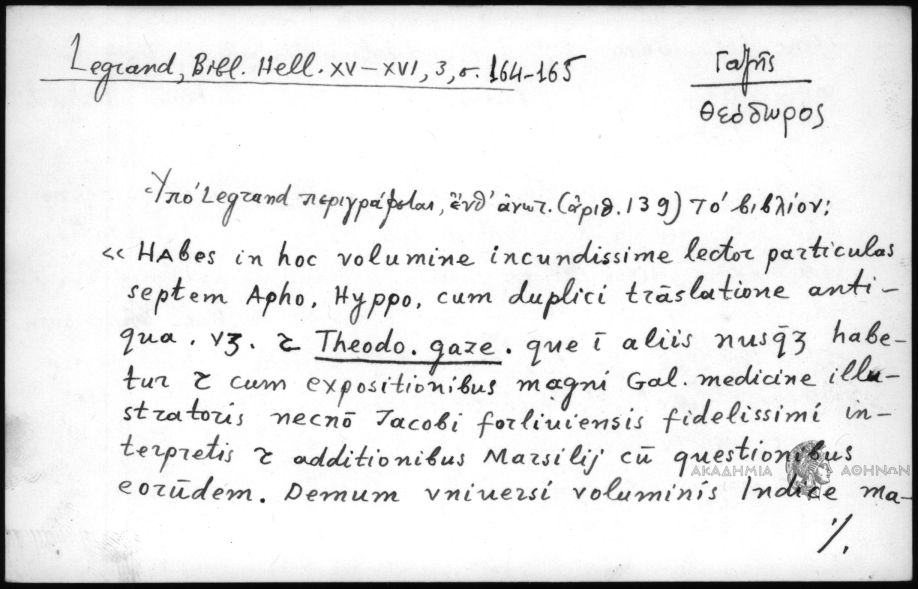 Legrand, Bibl. Hell. XV–XVI, 3, σ. 164-165
Γαζῆς
Θεόδωρος
Ὑπό Legrand περιγράφεται, ἔνθ' ἀνωτ. (ἀριθ. 139) τό βιβλίον:
« Habes in hoc volumine incundissime lector particulas
septem Apho. Hyppo. cum duplici trāslatione anti-
qua . vʒ. ⁊ Theodo. gaze . que ī aliis nusq̄ʒ habe-
tur ⁊ cum expositionibus magni Gal. medicine illu-
stratoris necnō Jacobi forliuiensis fidelissimi in-
terpretis ⁊ additionibus Marsilij cū questionibus
eorūdem. Demum vniuersi voluminis Indice ma-
ΑΚΑΔΗΜΙΑ ΑΘΗΝΩΝ
./.